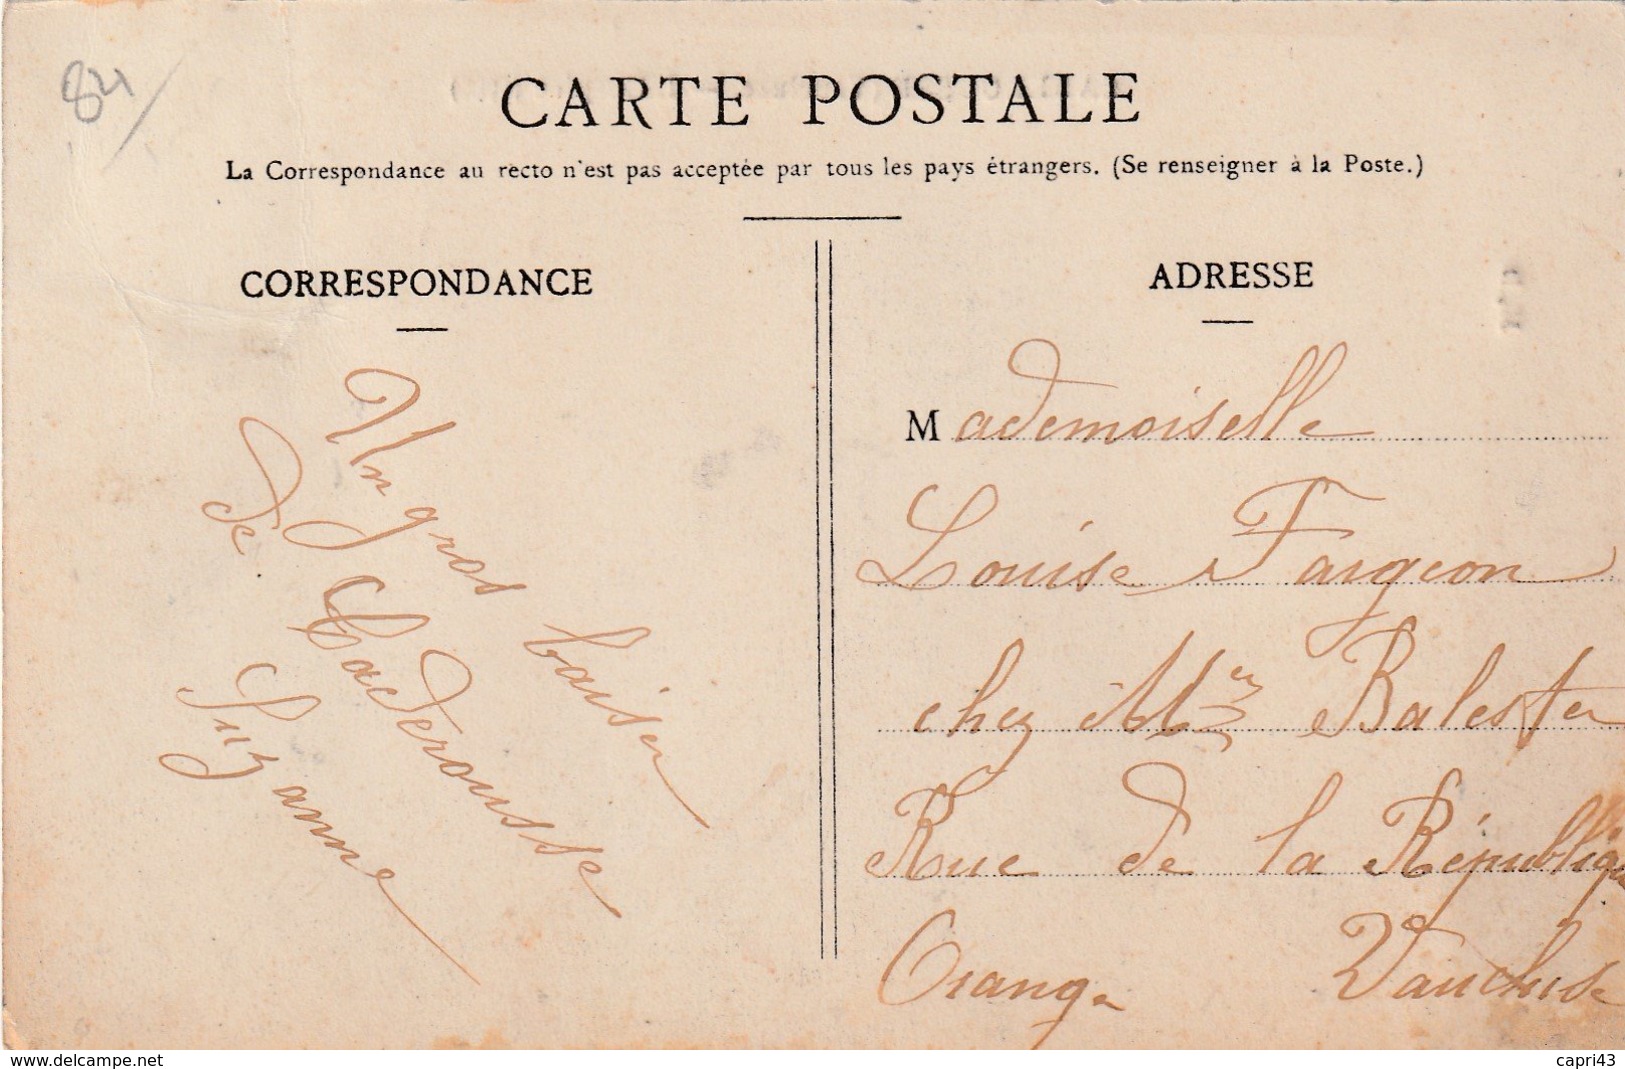 84/
CARTE POSTALE
La Correspondance au recto n'est pas acceptée par tous les pays étrangers. (Se renseigner à la Poste.)
CORRESPONDANCE
Un gros baiser
de Caderousse
Suzanne
ADRESSE
Mademoiselle
Louise Fargeon
chez Mme Balester
Rue de la République
Orange Vaucluse
www.delcampe.net
capri43